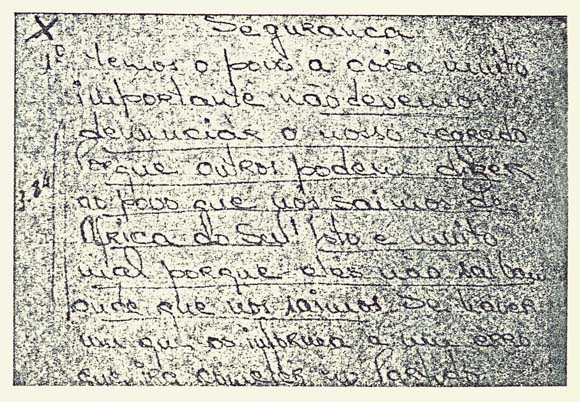 X Segurança
1º temos o povo a coisa muito
importante não devemos
denunciar o nosso segredo
Porque outros podem dizer
3.84 ao povo que nós saimos de
Africa do Sul! Isto e muito
mal porque eles não saibam
onde que nós saimos. Se haver
um que os informa é um erro
que ira cometer no Partido